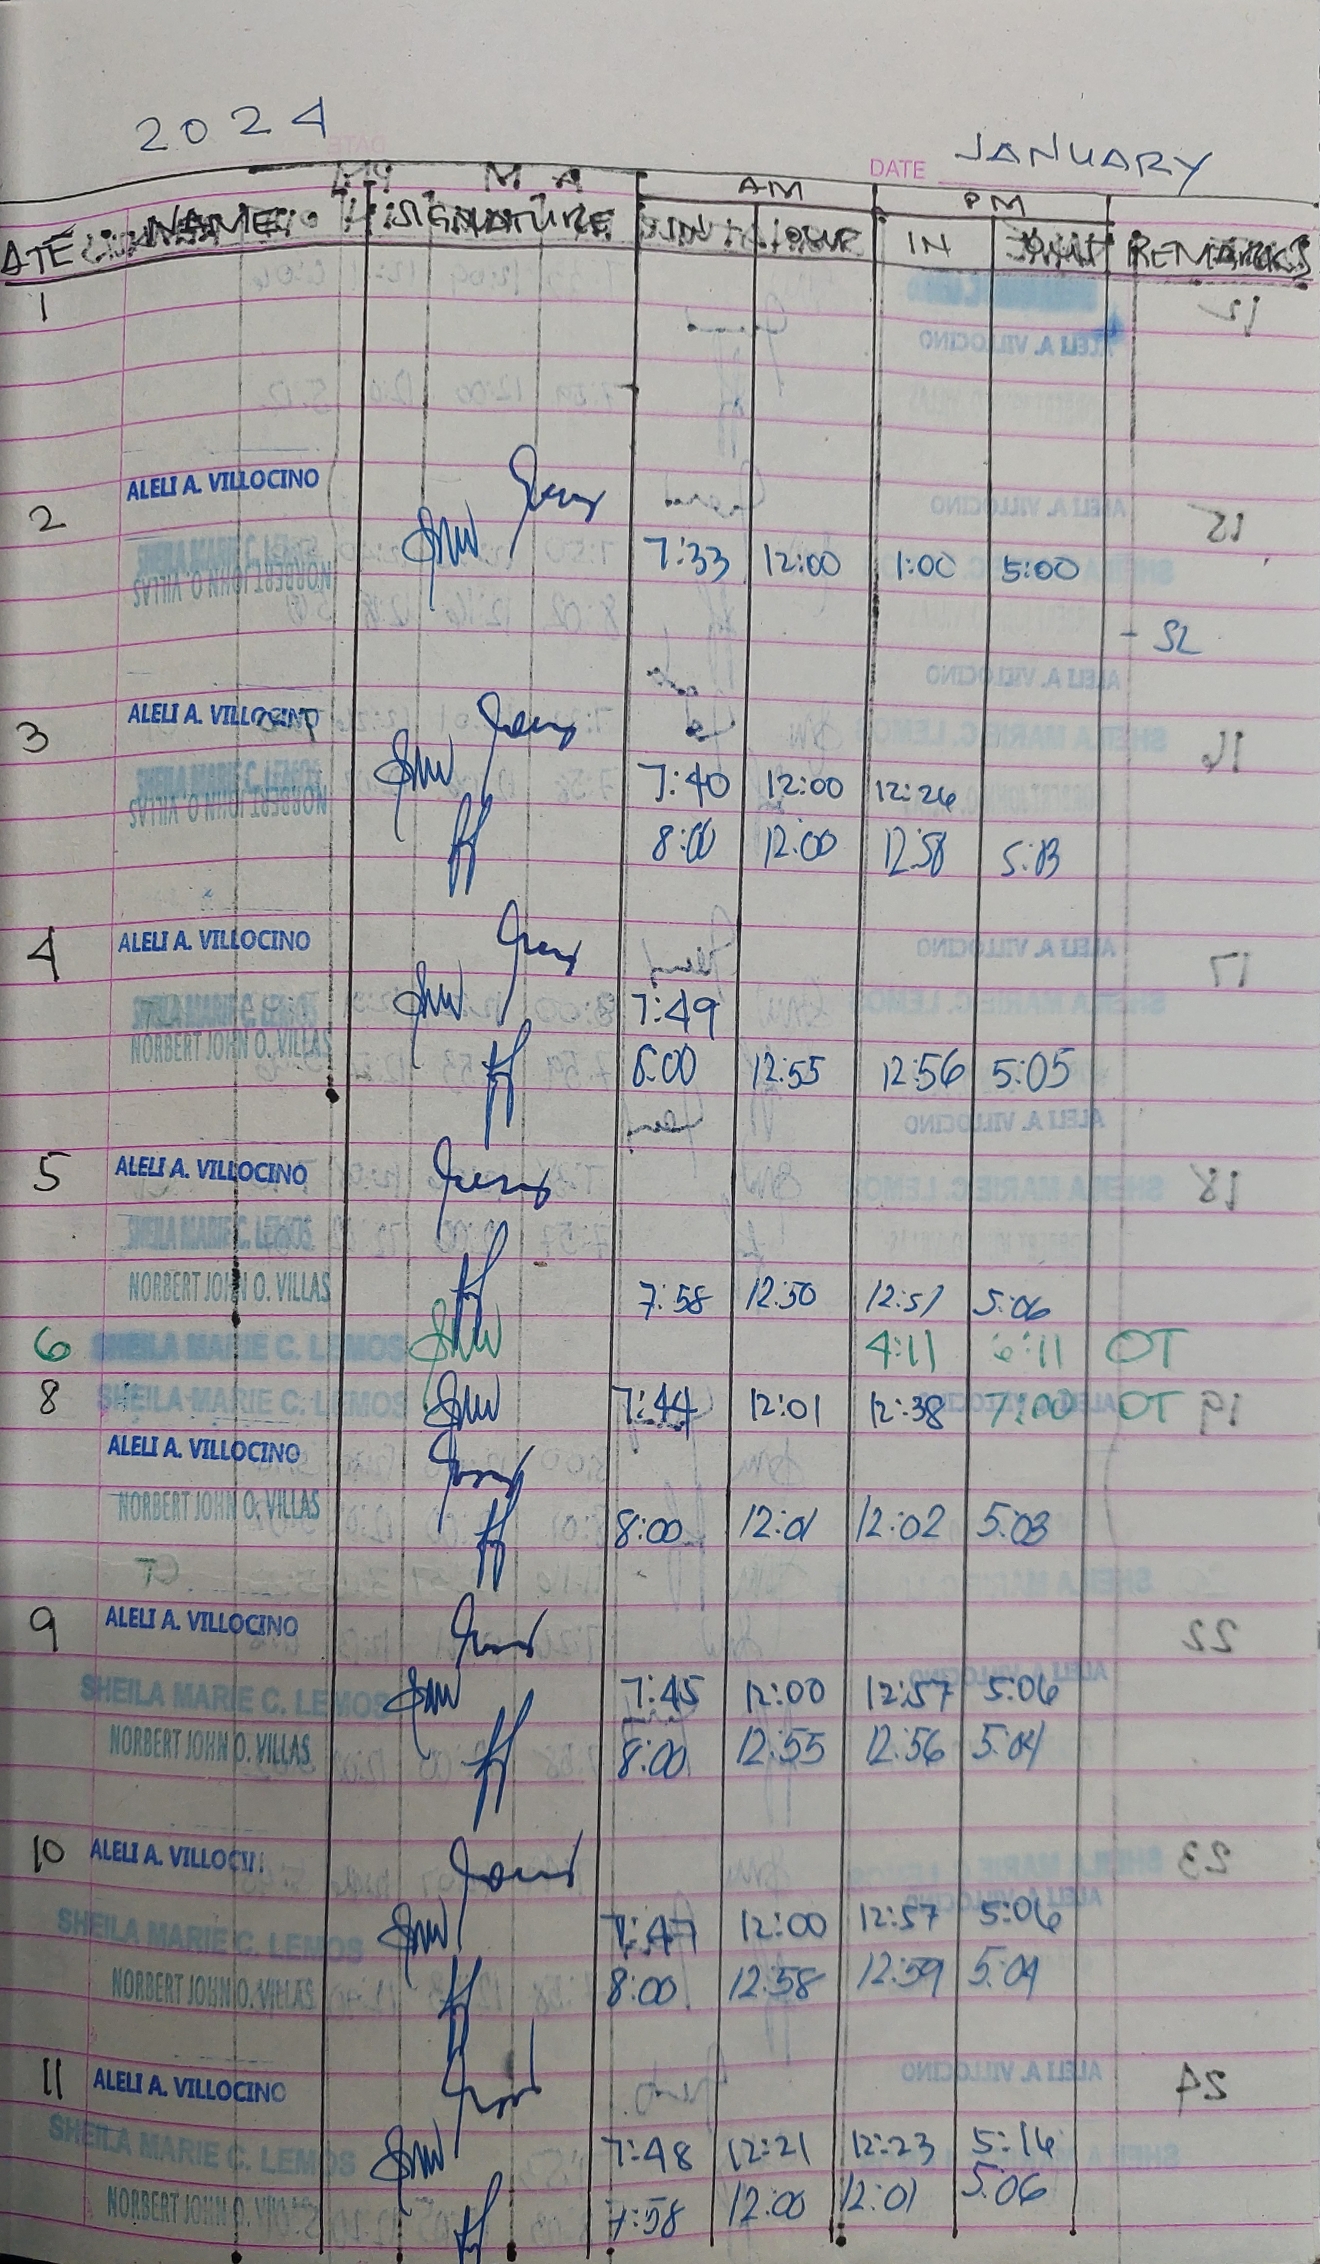 2024
DATE JANUARY
AM PM
NAME SIGNATURE IN OUT IN REMARKS
1
ALELI A. VILLOCINO
2
SHEILA MARIE C. LEMOS 7:33 12:00 1:00 5:00
NORBERT JOHN O. VILLAS
- SL
3 ALELI A. VILLOCINO
SHEILA MARIE C. LEMOS 7:40 12:00 12:26
NORBERT JOHN O. VILLAS 8:00 12:00 12:58 5:13
4 ALELI A. VILLOCINO
SHEILA MARIE C. LEMOS 7:49
NORBERT JOHN O. VILLAS 8:00 12:55 12:56 5:05
5 ALELI A. VILLOCINO
SHEILA MARIE C. LEMOS
NORBERT JOHN O. VILLAS 7:58 12:50 12:51 5:06
6 SHEILA MARIE C. LEMOS 4:11 6:11 OT
8 SHEILA MARIE C. LEMOS 7:44 12:01 12:38 7:00 OT
ALELI A. VILLOCINO
NORBERT JOHN O. VILLAS 8:00 12:01 12:02 5:03
9 ALELI A. VILLOCINO
SHEILA MARIE C. LEMOS 7:45 12:00 12:57 5:06
NORBERT JOHN O. VILLAS 8:00 12:55 12:56 5:04
10 ALELI A. VILLOCINO
SHEILA MARIE C. LEMOS 7:47 12:00 12:57 5:06
NORBERT JOHN O. VILLAS 8:00 12:58 12:59 5:04
11 ALELI A. VILLOCINO
SHEILA MARIE C. LEMOS 7:48 12:21 12:23 5:16
NORBERT JOHN O. VILLAS 7:58 12:00 12:01 5:06